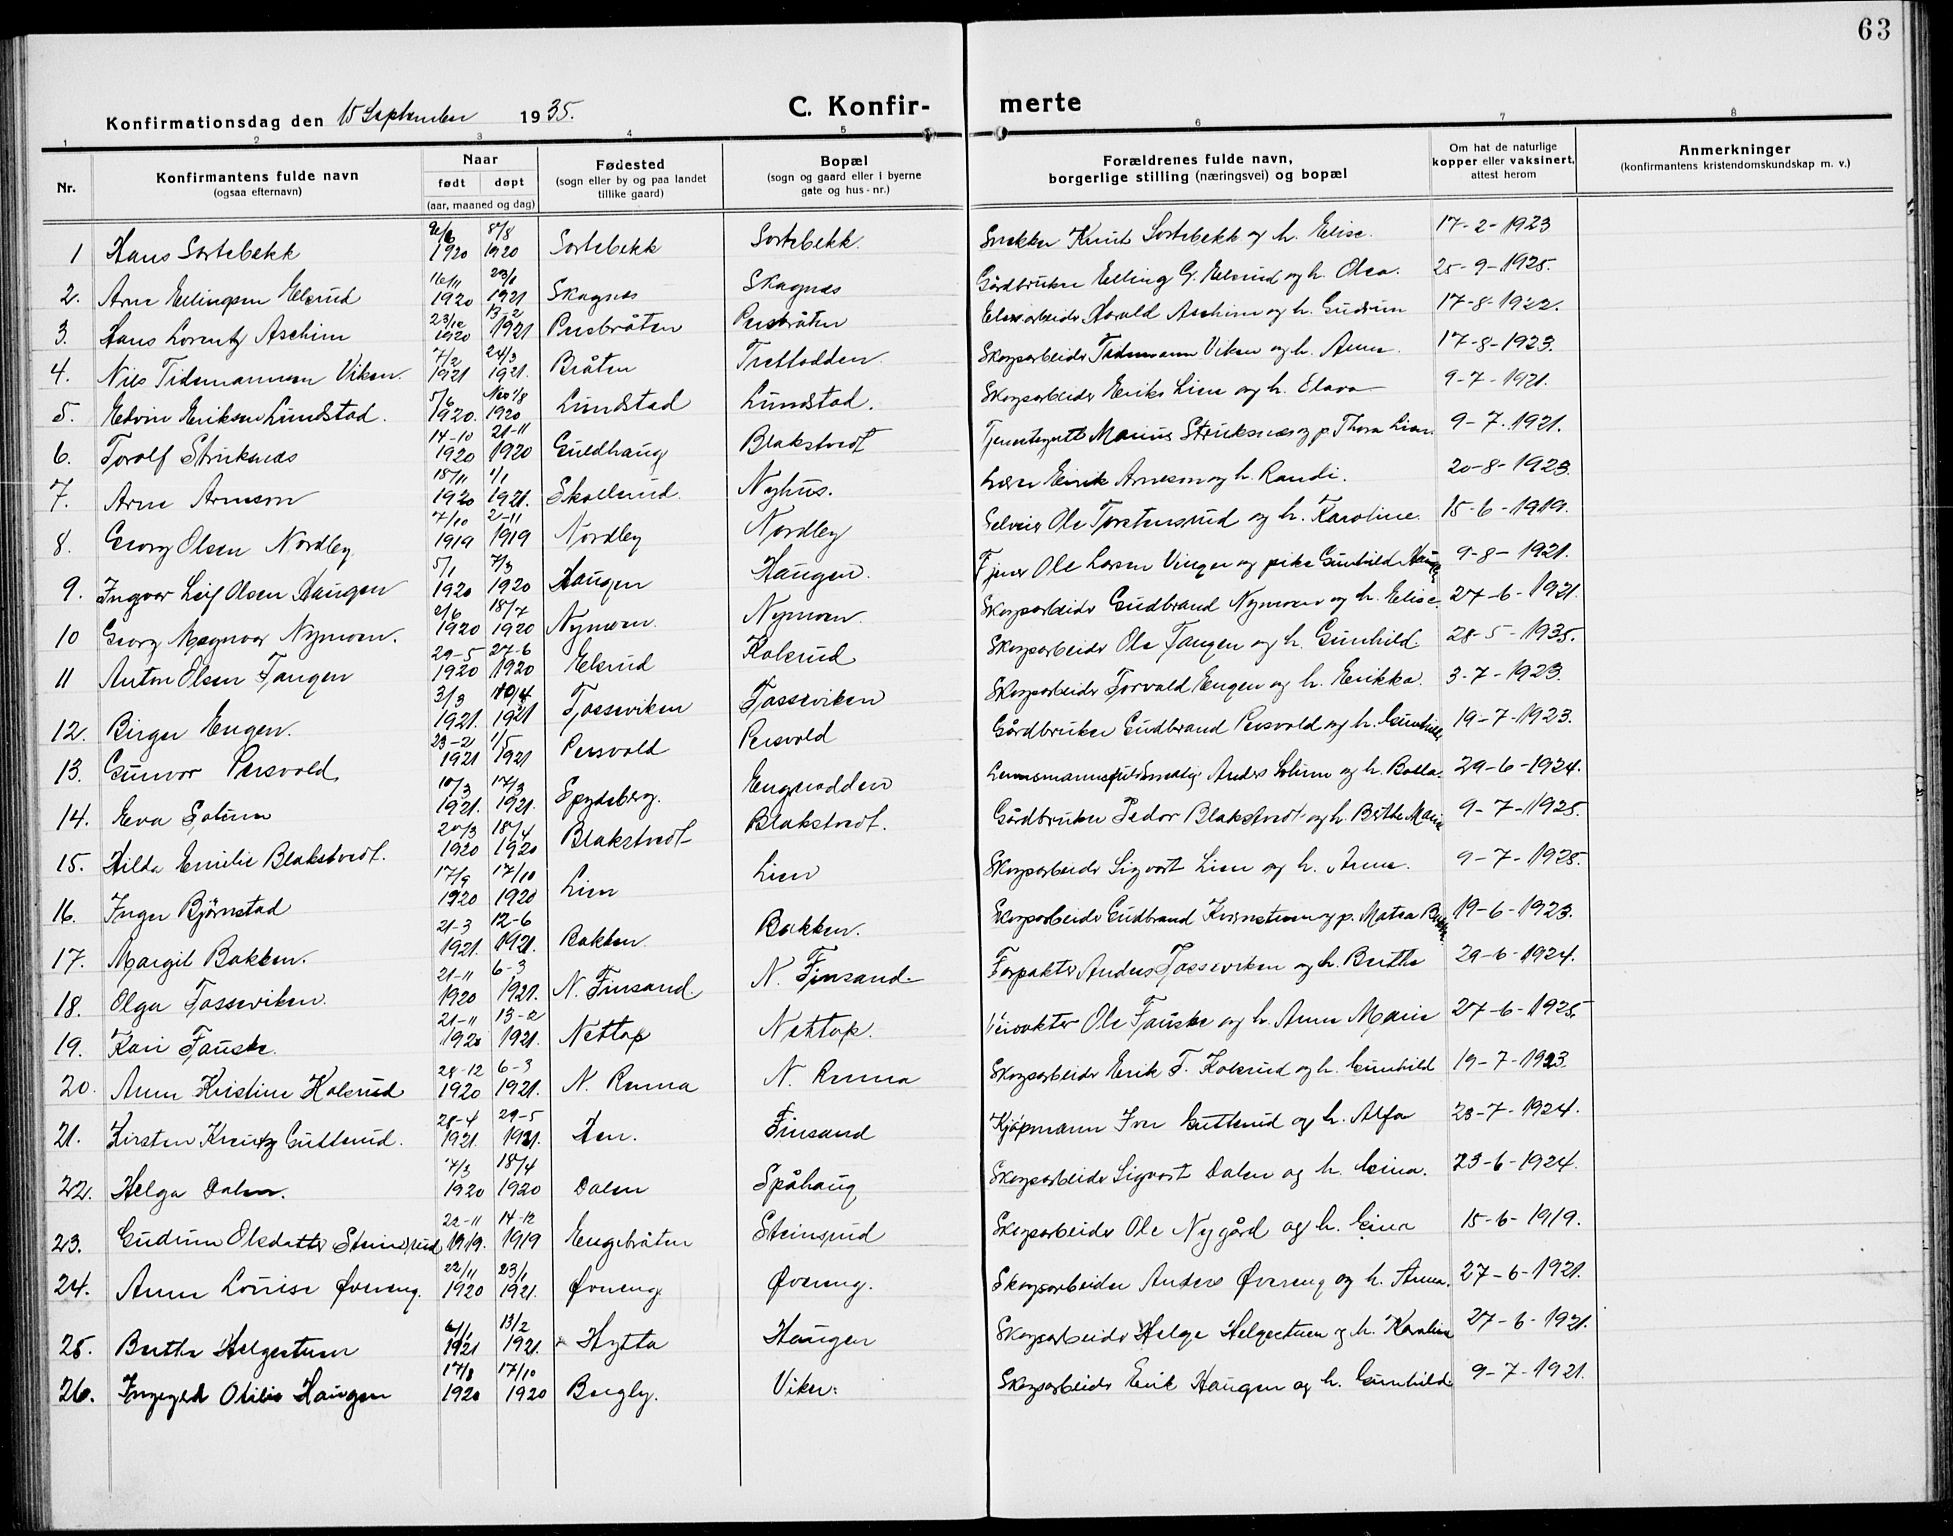 63
Konfirmationsdag den 15 September 1935.
C. Konfir- merte
1 2 3 4 5 6 7 8
Nr.
Konfirmantens fulde navn
(ogsaa efternavn)
Naar
født døpt
(aar, maaned og dag)
Fødested
(sogn eller by og paa landet
tillike gaard)
Bopæl
(sogn og gaard eller i byerne
gate og hus-nr.)
Forældrenes fulde navn,
borgerlige stilling (næringsvei) og bopæl
Om hat de naturlige
kopper eller vaksinert,
attest herom
Anmerkninger
(konfirmantens kristendomskundskap m. v.)
1 Hans Sortebekk 1920 8/8 1920 Sortebekk Sortebekk. Snekker Knut Sortebekk og h. Elise. 17-2-1923
2. Arne Ellingsen Elsrud 16/11 1920 23/1 1921 Skagnes Skagnes Gårdbruker Elling G. Elsrud og h. Olea. 25-9-1925.
3. Hans Lorentz Aschim 23/12 1920 13-2 1921 Persbråten Persbråten Harald Aschim og h. Gudrun 17-8-1922.
4. Nils Tidemannsen Viken. 7/2 1921 24/3 1921. Bråten Trettodden Skogsarbeider Tidemann Viken og h. Anne. 17-8-1923.
5. Edvin Eriksen Lundstad. 5/6 1920. 1/8 1920 Lundstad Lundstad. Skogsarbeider Erik Lien og h. Olava 9-7-1921.
6. Torolf Struksnæs 14-10 1920 21-11 1920 Guldhaug Blakstvedt Tjenestegutt Marius Struksnæs og p. Thora Lien. 9-7-1921.
7. Arne Arnesen 18/11 1920 1/1 1921. Skollerud. Nyhus. Lærer Eirik Arnesen og h. Randi. 20-8-1923.
8. Georg Olsen Nordby 7/10 1919 2-11 1919 Nordby Nordby Selveier Ole Torstensrud og h. Karoline. 15-6-1919.
9. Ingvar Leif Olsen Haugen 5/1 1920 7/3 1920 Haugen Haugen. Tjener Ole Larsen Vinger og pike Gunhild Haugen 9-8-1921.
10 Georg Magnvar Nymoen. 2/6 1920 18/7 1920 Nymoen. Nymoen. Skogsarbeider Gudbrand Nymoen og h. Elise. 27-6-1921.
11 Anton Olsen Tangen 29-5 1920 27-6 1920 Elsrud Kolsrud Skogsarbeider Ole Tangen og h. Gunhild. 28-5-1935.
12. Birger Engen. 3/3 1921. 10/4 1921 Tosseviken Tosseviken Skogsarbeider Torvald Engen og h. Erikka. 3-7-1923.
13. Gunvor Persvold 23-2 1921 1/5 1921 Persvold Persvold Gårdbruker Gudbrand Persvold og h. Gunhild 19-7-1923.
14. Eva Solum 10/3 1921. 17/3 1921. Spydeberg. Engnodden Lensmannsfuldmektig Anders Solum og h. Bolla. 29-6-1924.
15. Hilda Emilie Blakstvedt. 20/3 1920 18/4 1920 Blakstvedt Blakstvedt. Gårdbruker Peder Blakstvedt og h. Berthe Marie 9-7-1925.
16. Inger Bjørnstad 17/9 1920 17/10 1920 Lien Lien Skogsarbeider Sigvart Lien og h. Anna. 9-7-1925.
17. Margit Bakken. 21-3 1921. 12-6 1921. Bakken. Bakken. Skogsarbeider Gudbrand og p. Matea 19-6-1923.
18. Olga Tosseviken. 21-11 1920 6-3 1921. N. Finsand. N. Finsand. Forpakter Anders Tosseviken og h. Berthe 29-6-1924.
19. Kari Fauske. 21-11 1920 13-2 1921. Nettop Nettop. Veivokter Ole Fauske og h. Anne Marie 27-6-1925.
20. Anne Kristine Kolsrud 28-12 1920 6-3 1921. N. Ramna N. Ramna Skogsarbeider Erik T. Kolsrud og h. Gunhild 19-7-1923.
21. Kirsten Kreutz Gutterud. 28-4 1921. 29-5 1921. Hen. Finsand Kjøpmann Iver Gutterud og h. Alfa 23-7-1924.
22. Helga Dalen. 7/3 1920 18/4 1920 Dalen Spåhaug Skogsarbeider Sigvart Dalen og h. Gina. 23-6-1924.
23. Gudrun Olsdatter Steinsrud 22-11 1919. 14-12 1919 Engebråten Steinsrud Skogsarbeider Ole Nygård og h. Gina 15-6-1919.
24. Anne Louise Øvereng. 22/11 1920 23/1 1921. Øvereng Øvereng. Skogsarbeider Anders Øvereng og h. Anna. 27-6-1921.
25. Berthe Helgestuen 1921 13/2 1921. Hytta Haugen Skogsarbeider Helge Helgestuen og h. Karoline 27-6-1921.
26. Ingegerd Otilie Haugen 17/8 1920 17/10 1920 Bergly. Viker. Skogsarbeider Erik Haugen og h. Gunhild 9-7-1921.